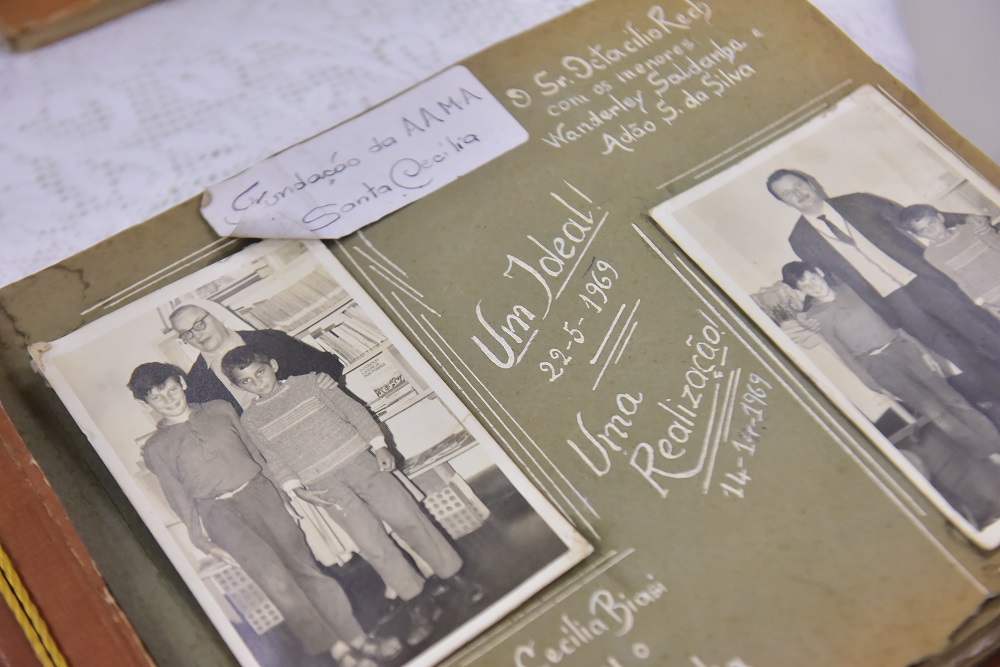 Fundação da AAMA
Santa Cecília
O Sr. Octacílio Rech
com os menores
Wanderley Saldanha e
Adão S. da Silva
Um Ideal!
22-5-1969
Uma
Realização!
Cecília Biasi